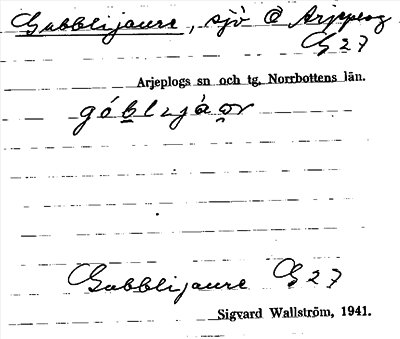 Gabblijaure, sjö @ Arjeplog
G 27
Arjeplogs sn och tg, Norrbottens län.
Gabblijaure G 27
Sigvard Wallström, 1941.